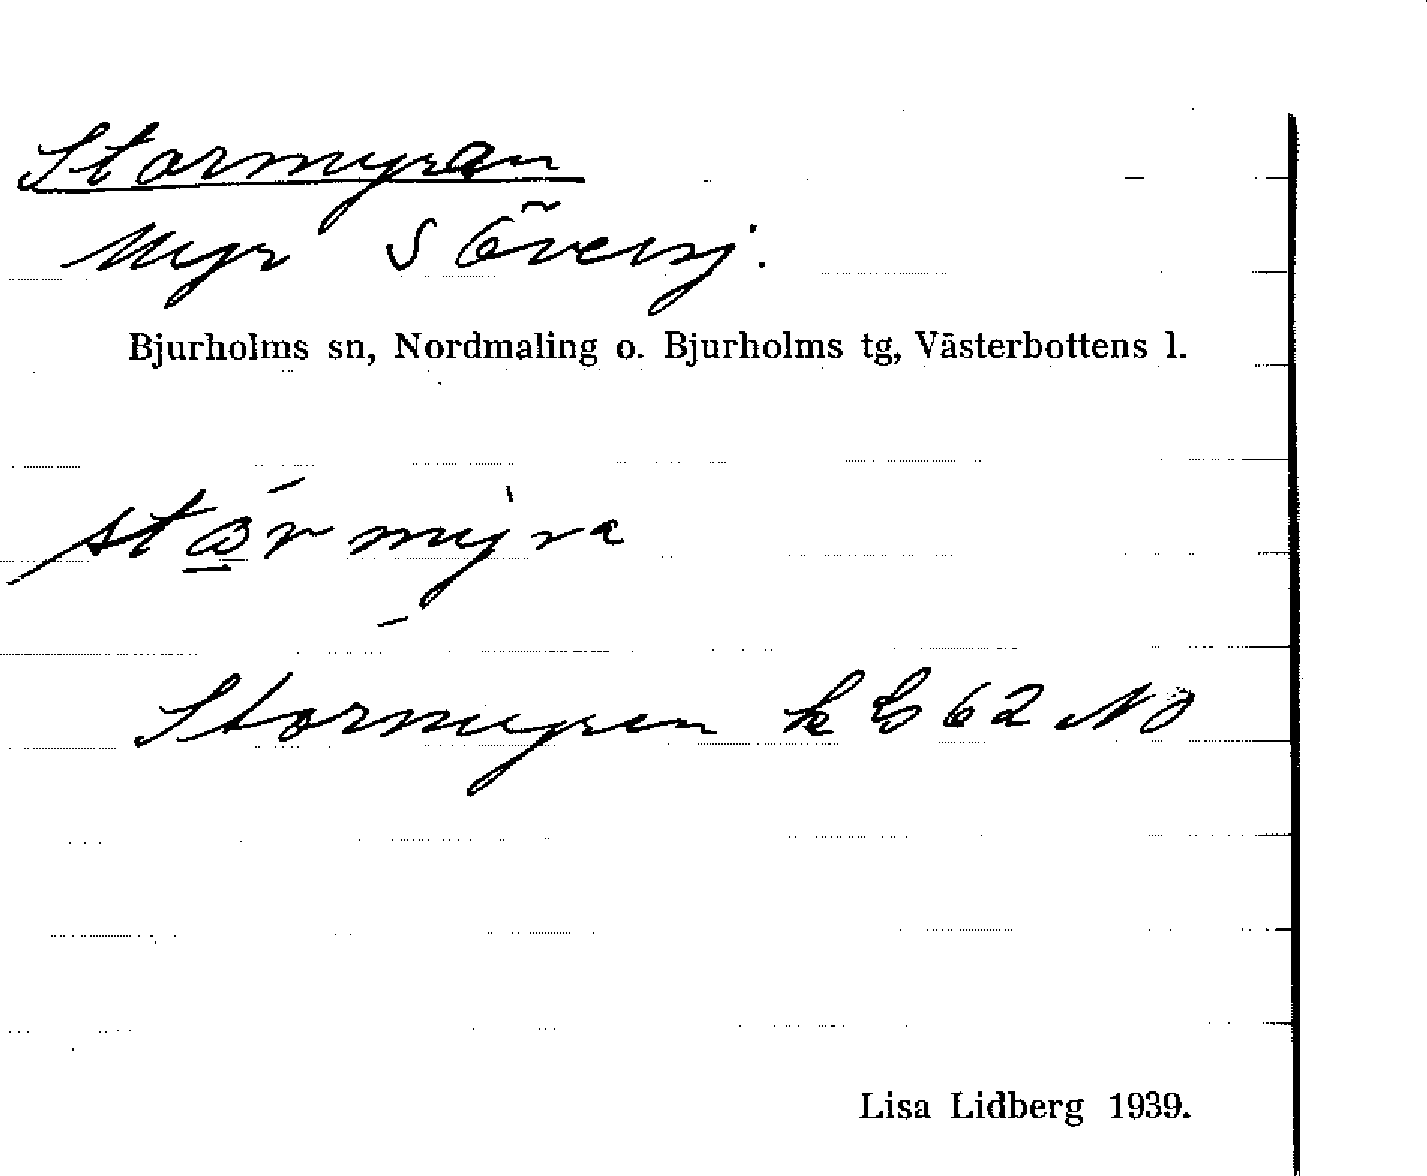 Stormyran
Myr S Översj.
Bjurholms sn, Nordmaling o. Bjurholms tg, Västerbottens l.
Stormyren kb 62 NO
Lisa Lidberg 1939.